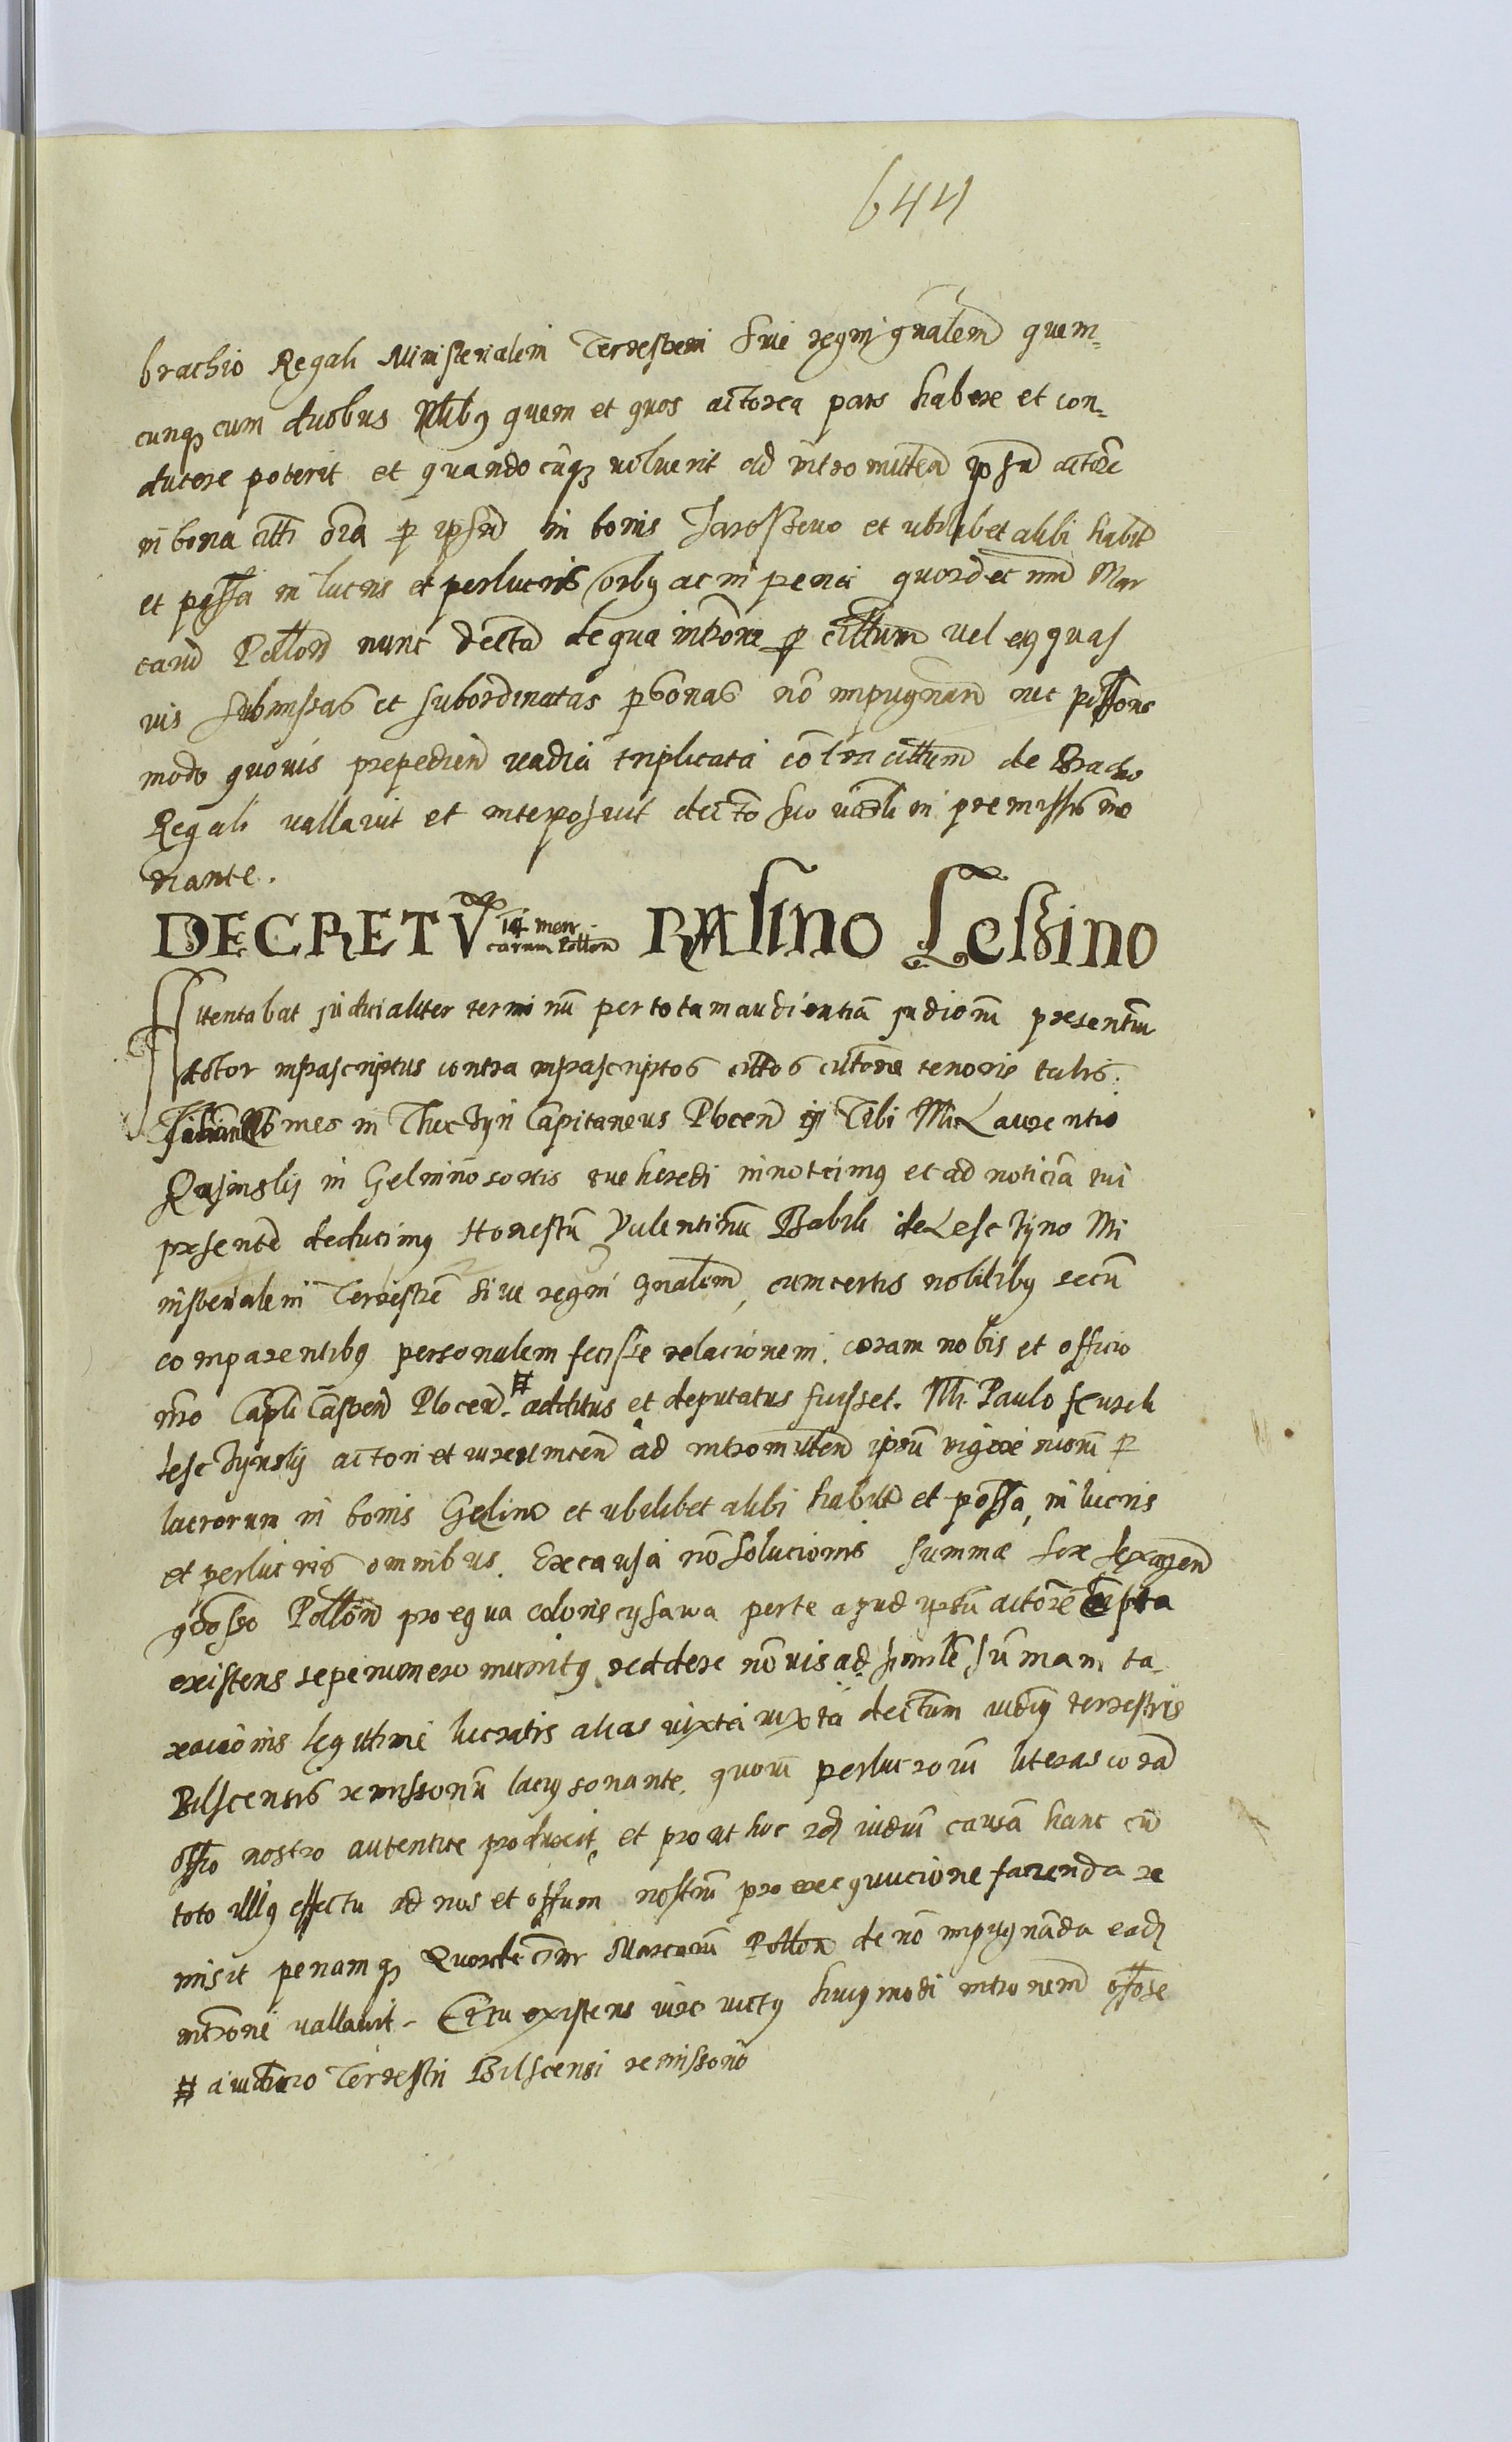 644
brachio Regali Ministerialem Terrestrem Sive regni gnalem quem-
cunq cum duobus Nlibq quem et quos actorea pars habere et con-
ducere poterit et quandocuq voluerit ad intromitten ipsu actore
in bona citti oia p ipsu in bonis Jarossewo et ubilibet alibi habit
et possa in lucris et perlucris oibq ac in pena quordecim Mar
caru Pollon nunc decta de qua introne p cittum vel eiq quas
vis submissas et subordinatas psonas no impugnan nec possone
modo quovis prepedien vadia triplicata contra cittum de Brachio
Regali vallavit et interposuit decto suo in premissis me
diante.
DECRETV 14 mar
carum Pollon RAsino Lessino
Attentabat judicialiter terminu per totam audientia judiciorum presentim
Actor infrascriptus contra infrascriptos cittos citone tenoris talis.
Comes in Thucdyn Capitaneus Plocen Tibi Mi Laurentio
Rasinsky in Gelnino sortis tue heredi innotecimq et ad noticia tui
presente deducimq Honestu Valentinu Babik de Lesczyno Mi
nisterialem Terrestre sive regni gnalem, cum certis nobilibq secu
comparentibq personalem fecisse relacionem. coram nobis et officio
nro Capli Castren Plocen. # additus et deputatus fuisset. Mi. Paulo
Lesczynsky actori et iurevincen ad intromitten ipsu vigore niorum p
lucrorum in bonis Gelino et ubilibet alibi habit et possa, in lucris
et perlucris omnibus. Ex causa no solucionis summe sex sexagen
grosso Pollon pro equa coloris cysawa per te apud ipsu actore empta
existens sepenumero munitq reddere no vis ad simile summam ta-
xacionis legittime lucratis alias iuxta decctum iudicy terrestris
Bilscensis remissoriu lacius sonante, quoru perlucroru literas cora
offo nostro autentice produxit, et prout hoc iudicium causa hanc cu
toto illiq effectu ad nos et offum nostru pro execquucione facienda re
misit penamq Quordecim Marcaru Pollon de no impugnada ead
introne vallavit. Et tu existens iure victq huiqmodi intronem
# a iudicio Terrestri Bilscensi remissorio